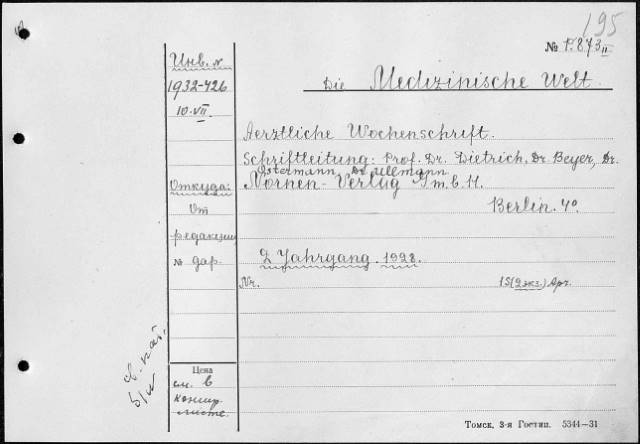 195
№ P.873 II
Инв. №
1932-426
10.VII.
Die Medizinische Welt.
Aerztliche Wochenschrift.
Schriftleitung: Prof. Dr. Dietrich, Dr. Beyer, Dr.
Ostermann, Dr. Ullmann
Nornen-Verlag G.m.b.H.
Berlin. 40.
Откуда:
От
редакции
№ дар.
2 Jahrgang. 1928.
Nr. 15(2 экз.) Apr.
Цена
см. в
концу
листе.
б/и
Томск, 3-я Гостип. 5344—31